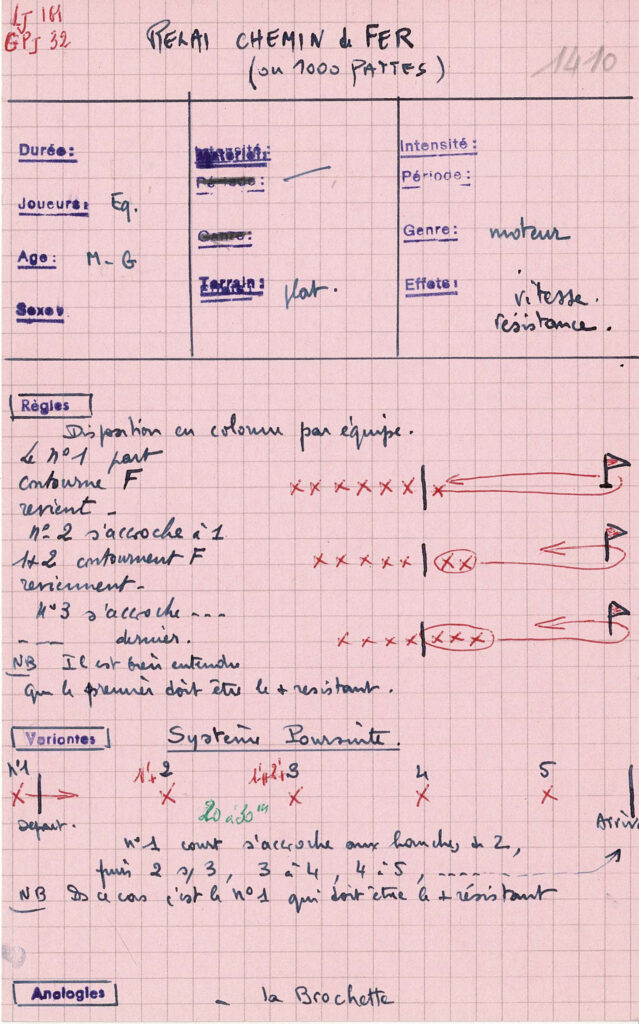 LJ 161
GPJ 32
RELAI CHEMIN de FER
(ou 1000 PATTES)
1410
Durée:
Joueurs: Eq.
Age: M-G
Sexe:
Période:
Genre:
Terrain: plat.
Intensité:
Période:
Genre: moteur
Effets: vitesse.
résistance.
Règles
Disposition en colonne par équipe.
Le n°1 part
contourne F
revient -
n°2 s'accroche à 1
1+2 contournent F
reviennent -
n°3 s'accroche ---
- --- dernier.
NB Il est bien entendu
que le premier doit être le + resistant.
Variantes
Système Poursuite.
n°1 1+2 1+2+3 4 5
Départ. 20 à 30 m Arrivée
n°1 court s'accroche aux hanches de 2,
puis 2 s/3, 3 à 4, 4 à 5, ------
NB Ds ce cas c'est le n°1 qui doit être le + résistant
Analogies - la Brochette